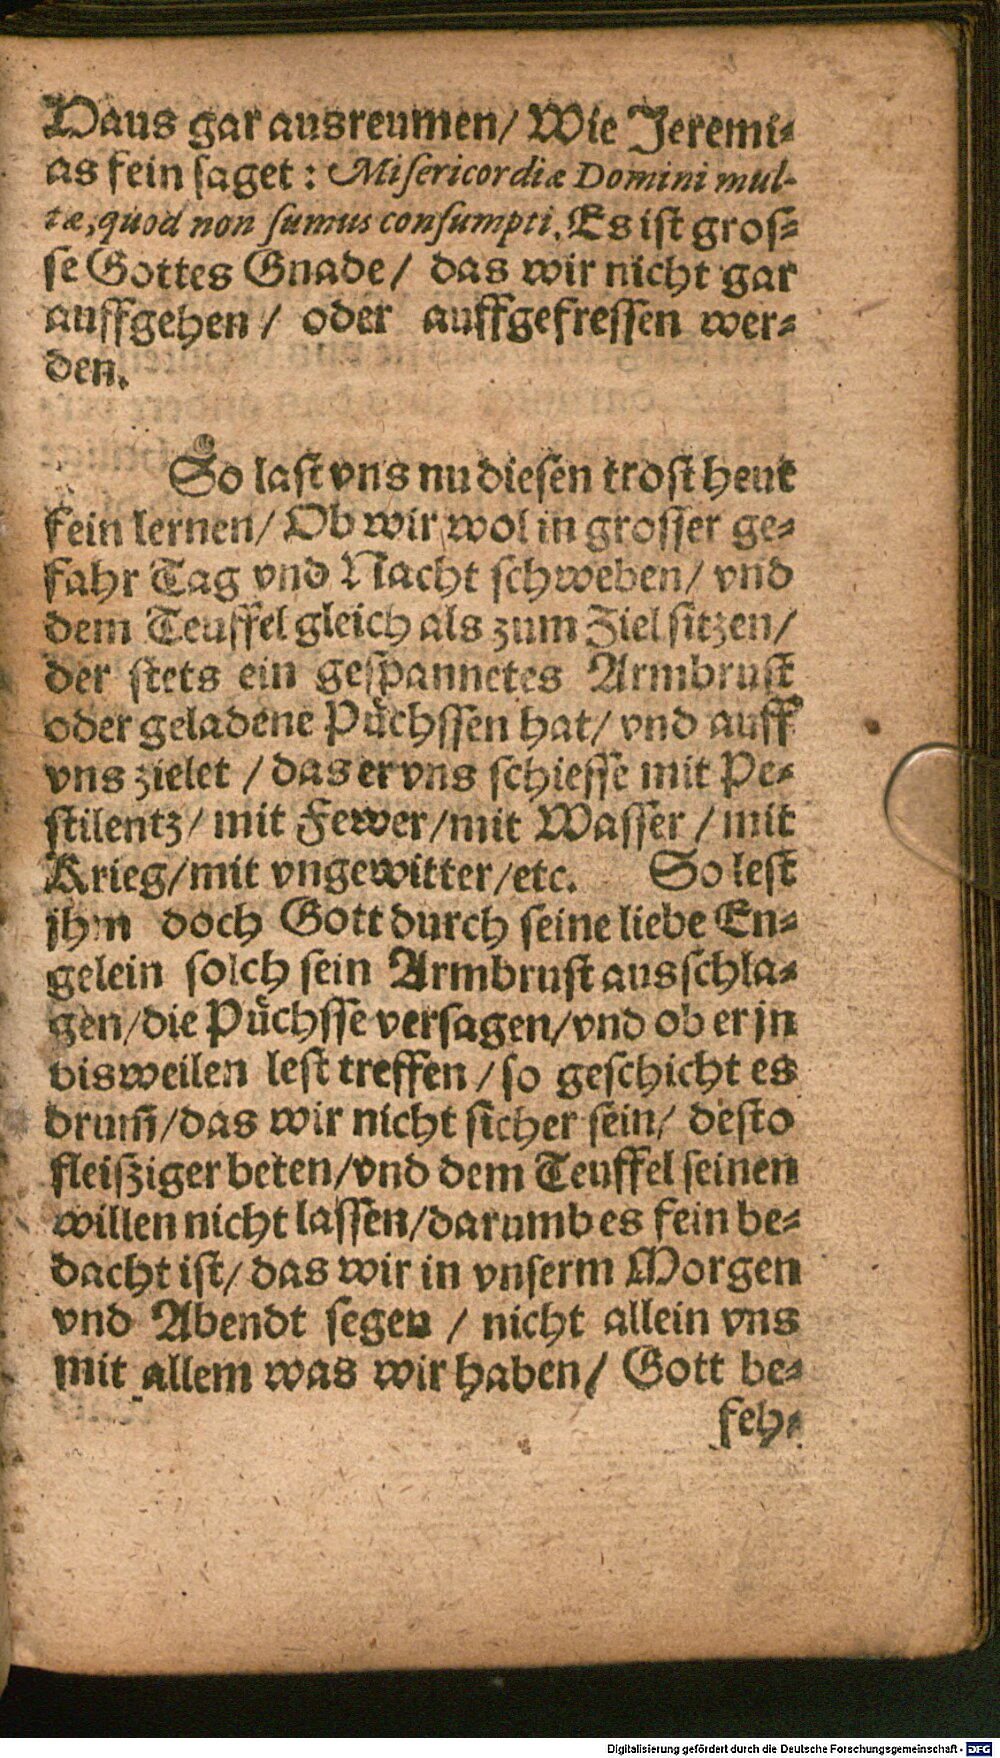 Haus gar ausreumen/ Wie Jeremi⸗
as fein saget: Misericordiæ Domini mul-
tæ, quod non sumus consumpti. Es ist gros⸗
se Gottes Gnade/ das wir nicht gar
auffgehen/ oder auffgefressen wer⸗
den.
So last vns nu diesen trost heut
fein lernen/ Ob wir wol in grosser ge⸗
fahr Tag vnd Nacht schweben/ vnd
dem Teuffel gleich als zum Ziel sitzen/
der stets ein gespannetes Armbrust
oder geladene Püchssen hat/ vnd auff
vns zielet/ das er vns schiesse mit Pe⸗
stilentz/ mit Fewer/ mit Wasser/ mit
Krieg/ mit vngewitter/ etc. So lest
jhm doch Gott durch seine liebe En⸗
gelein solch sein Armbrust ausschla⸗
gen/ die Püchsse versagen/ vnd ob er jn
bisweilen lest treffen/ so geschicht es
drum̃/ das wir nicht sicher sein/ desto
fleisziger beten/ vnd dem Teuffel seinen
willen nicht lassen/ darumb es fein be⸗
dacht ist/ das wir in vnserm Morgen
vnd Abendt segen/ nicht allein vns
mit allem was wir haben/ Gott be⸗
feh⸗
Digitalisierung gefördert durch die Deutsche Forschungsgemeinschaft - DFG